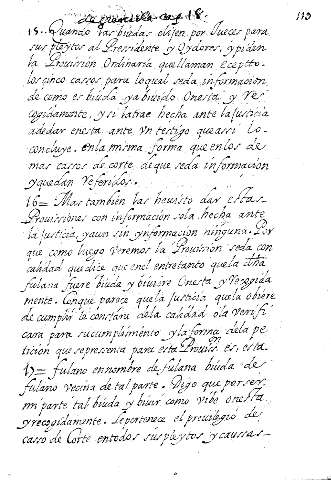 113
15 Quando las biudas elijen por Jueces para
sus pleytos al Presidente y Oydores, y piden
la Provision Ordinaria que llaman Ecepto
los cinco cassos para lo qual se da informacion
de como es biuda ya bivido Onesta y Re
cogidamente, y si la trae hecha ante la Justicia
a de dar en esta ante Un testigo que assi lo
concluye. En la misma forma que en los de
mas cassos de corte, de que se da informacion
y quedan Referidos.
16= Mas tambien las he visto dar estas
Provissiones con informacion sola hecha ante
la Justicia, y aun sin ynformacion ninguna. Por
que como luego veremos la Provision se da con
calidad que dice que en el entretanto que la dha
fulana fuere biuda y biviere Onesta y Recogida
mente. Conque parece que la Justicia que la obiere
de cumplir le constara de la calidad o la verifi
cara para su cumplimiento y la forma de la pe
ticion que se presenta para esta Proviss.ⁿ es, esta.
17= fulano en nombre de fulana biuda de
fulano vecina de tal parte. Digo que por ser
mi parte tal biuda y bivir como vibe onesta
y recogidamente. Le pertenece el previlegio de
casso de Corte en todos sus pleytos y caussas-